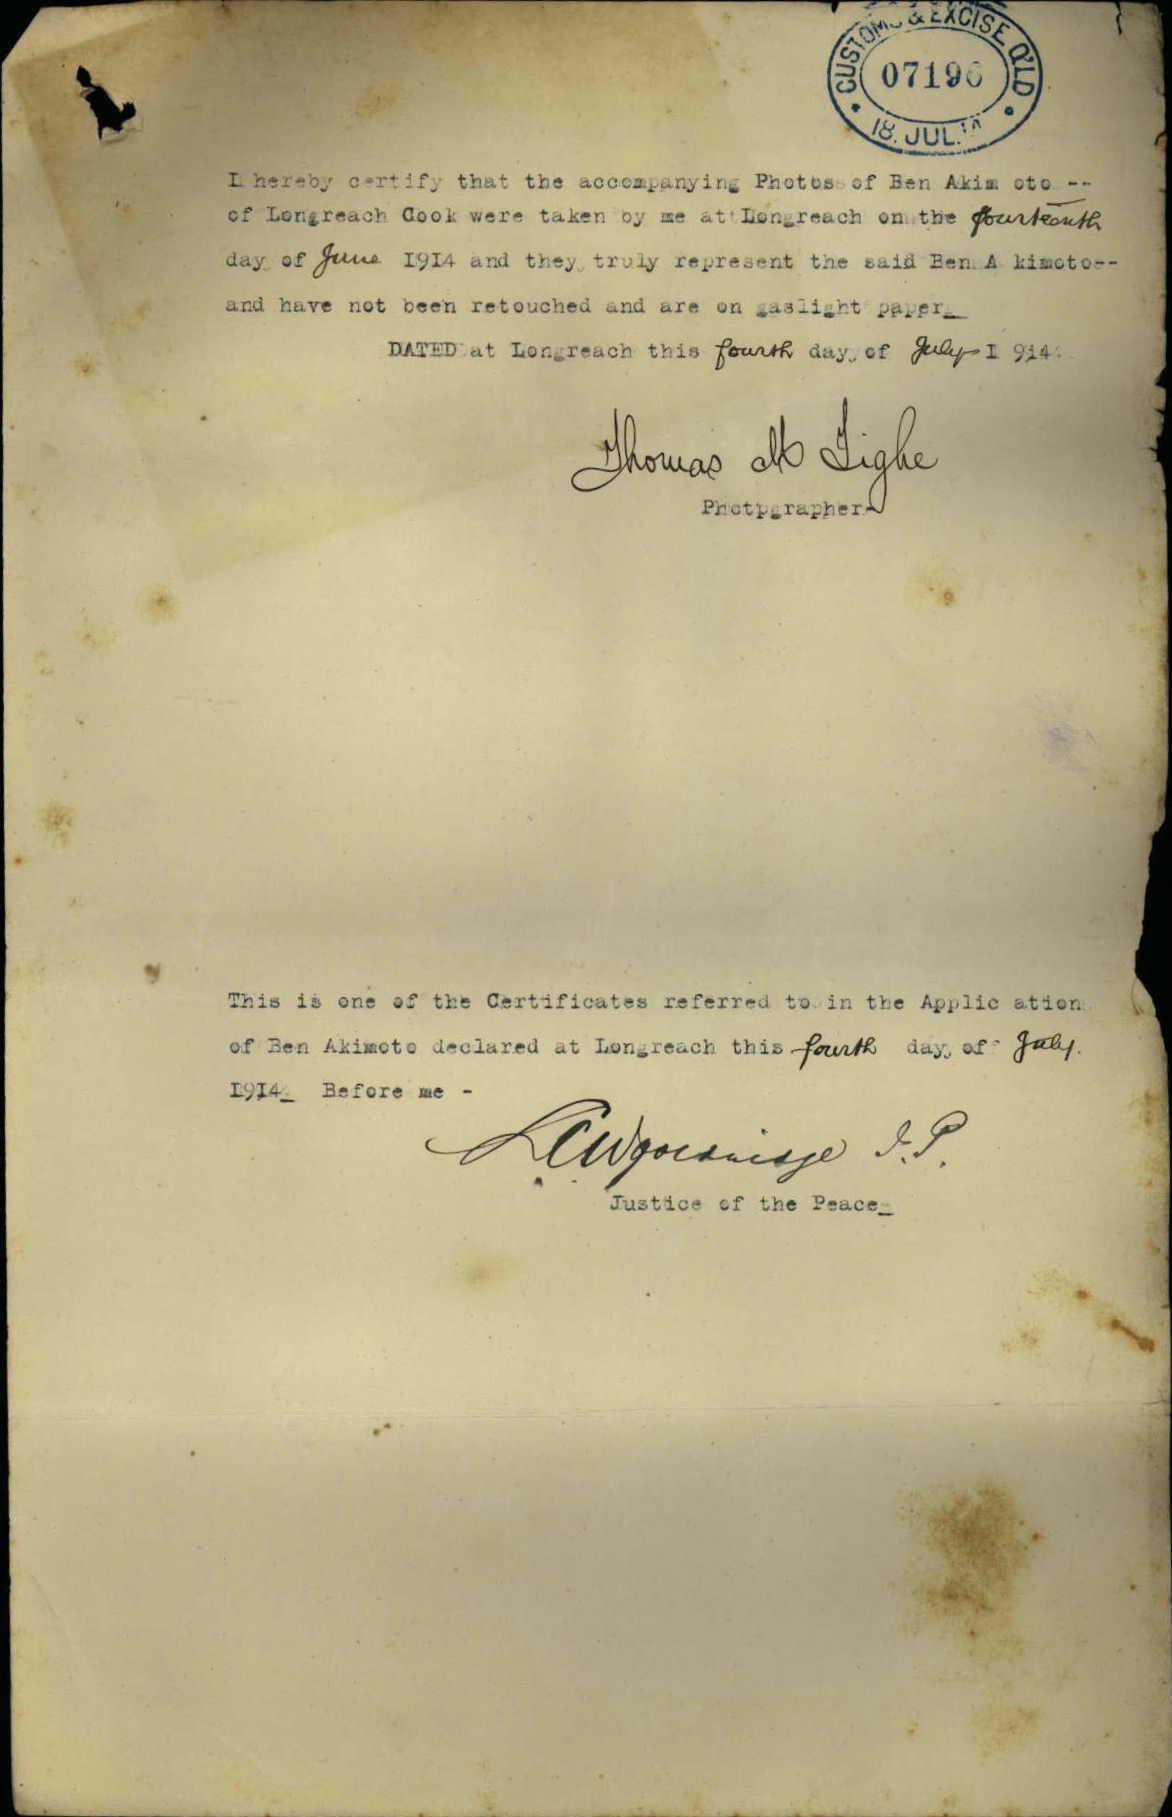 CUSTOMS & EXCISE Q'LD
07196
18. JUL. 14
I hereby certify that the accompanying Photos of Ben Akim oto --
of Longreach Cook were taken by me at Longreach on the fourteenth
day of June 1914 and they truly represent the said Ben A kimoto--
and have not been retouched and are on gaslight paper_
DATED at Longreach this fourth day of July I 914
Thomas Mc Tighe
Photpgrapher-
This is one of the Certificates referred to in the Applic ation
of Ben Akimoto declared at Longreach this fourth day of July.
I9I4_ Before me -
J.P.
Justice of the Peace_